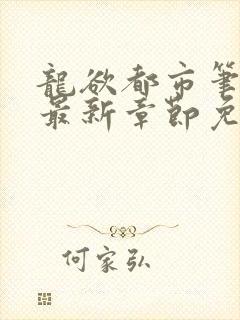 龍欲都市筆
最新章節免
何家弘